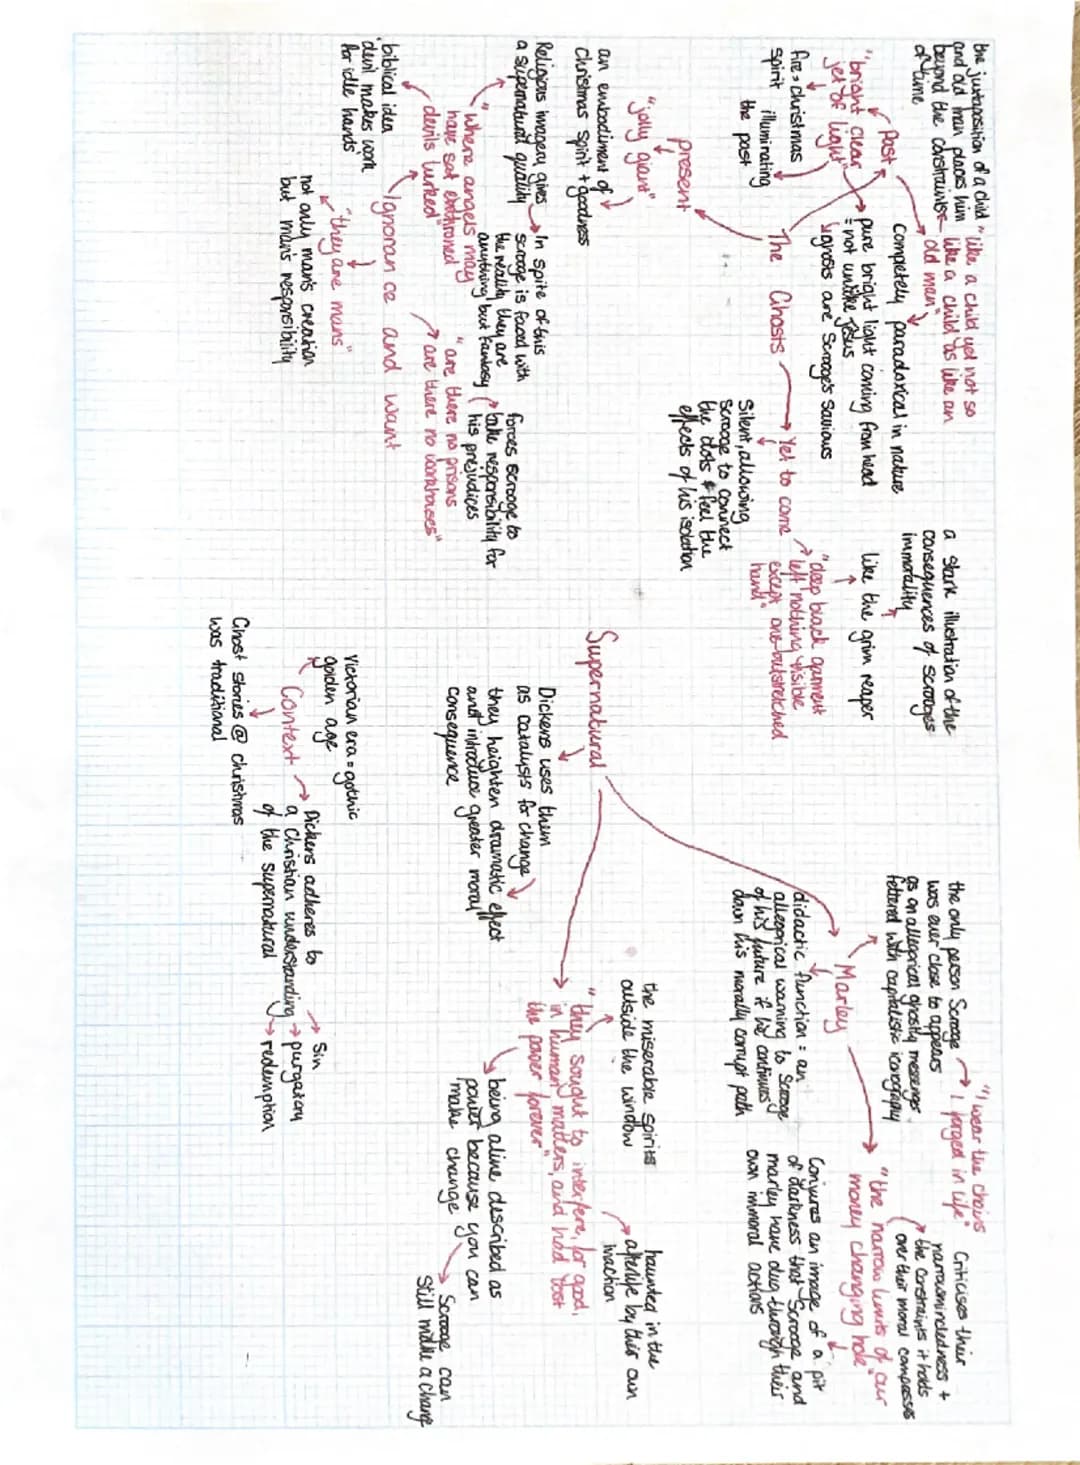 the juxtaposition of a child
and old man places him
beyond the constraints
of time
"like a child yet not so
like a child as like an
old man"
Past
Completely paradoxical in nature
"bright clear
jet of light"
pure bright light coming from head
= not unlike Jesus
ghosts are Scrooge's saviours
fire > christmas
spirit illuminating
the past
The Ghosts
present
"jolly giant"
an embodiment of
Christmas spirit + goodness
Yet to come
Silent, allowing
Scrooge to connect
the dots & feel the
effects of his isolation
"deep black garment
left nothing visible
except one outstretched
hand"
like the grim reaper
a stark illustration of the
consequences of Scrooges
immorality
Religious imagery gives
a supernatural quality
"Where angels may
have sat enthroned
devils lurked"
biblical idea
'devil makes work
for idle hands'
In spite of this
scrooge is faced with
the reality they are
anything but fantasy
Ignorance and want
"they are mans"
not only man's creation
but man's responsibility
forces scrooge to
take responsibility for
his prejudices
"are there no prisons
are there no workhouses"
Supernatural
Dickens uses them
as catalysts for change
they heighten dramatic effect
and introduce greater moral
consequence
Marley
the only person Scrooge
was ever close to appears
as an allegorical ghostly messenger
fettered with capitalistic iconography
"I wear the chains
I forged in life"
didactic function = an
allegorical warning to Scrooge
of his future if he continues
down his morally corrupt path
"the narrow limits of our
money changing hole"
Criticises their
narrowmindedness +
the constraints it holds
over their moral compasses
Conjures an image of a pit
of darkness that Scrooge and
marley have dug through their
own immoral actions
"they sought to interfere, for good,
in human matters, and had lost
the power forever"
the miserable spirits
outside the window
haunted in the
afterlife by their own
inaction
being alive described as
power because you can
make change
Scrooge can
still make a change
Context
Victorian era = gothic
golden age
Ghost stories @ Christmas
was traditional
Dickens adheres to
a Christian understanding
of the supernatural
Sin
purgatory
redemption